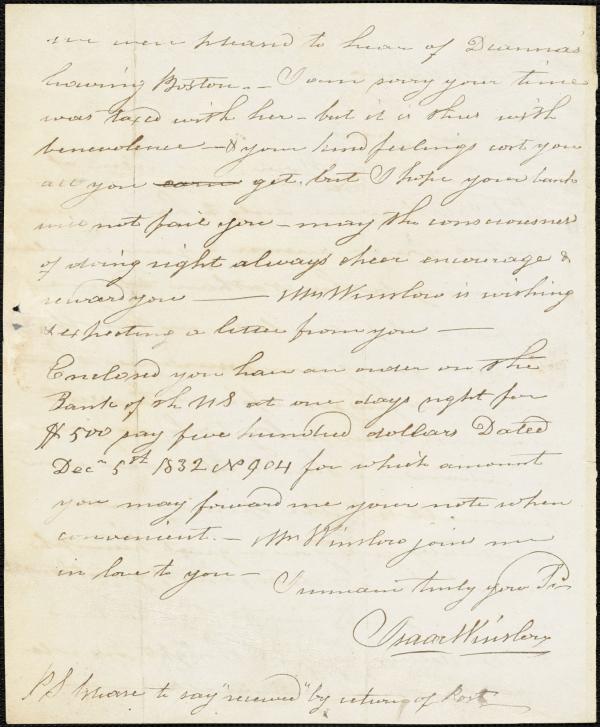 we were pleased to hear of Deanna's
leaving Boston. - I am sorry your time
was taxed with her - but it is thus with
benevolence - & your kind feelings cost you
all you get, but I hope your bank
will not fail you - may the consciousness
of doing right always cheer encourage &
reward you — Mrs Winslow is wishing
& expecting a letter from you —
Enclosed you have an order on the
Bank of th US at one days sight for
$500 say five hundred dollars Dated
Decr 5st 1832 No 904 for which amount
you may forward me your note when
convenient. - Mrs Winslow joins me
in love to you -
I remain truly your Fr
Isaac Winslow
PS please to say "received" by return of Post